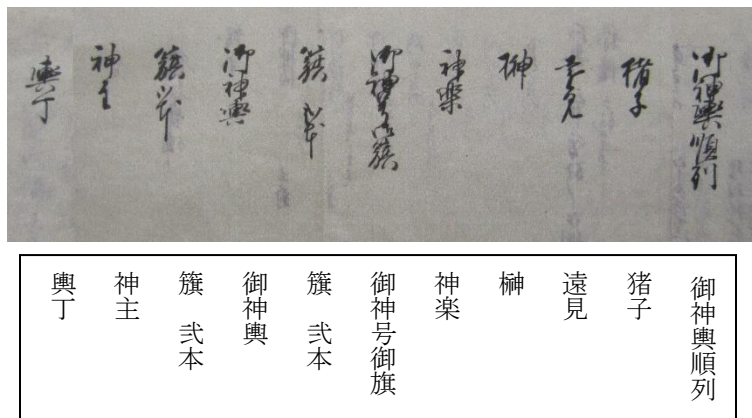 御神輿順列
猪子
遠見
榊
神楽
御神号御籏
籏弐本
御神輿
籏弐本
神主
輿丁
御神輿順列
猪子
遠見
榊
神楽
御神号御旗
籏　弐本
御神輿
籏　弐本
神主
輿丁